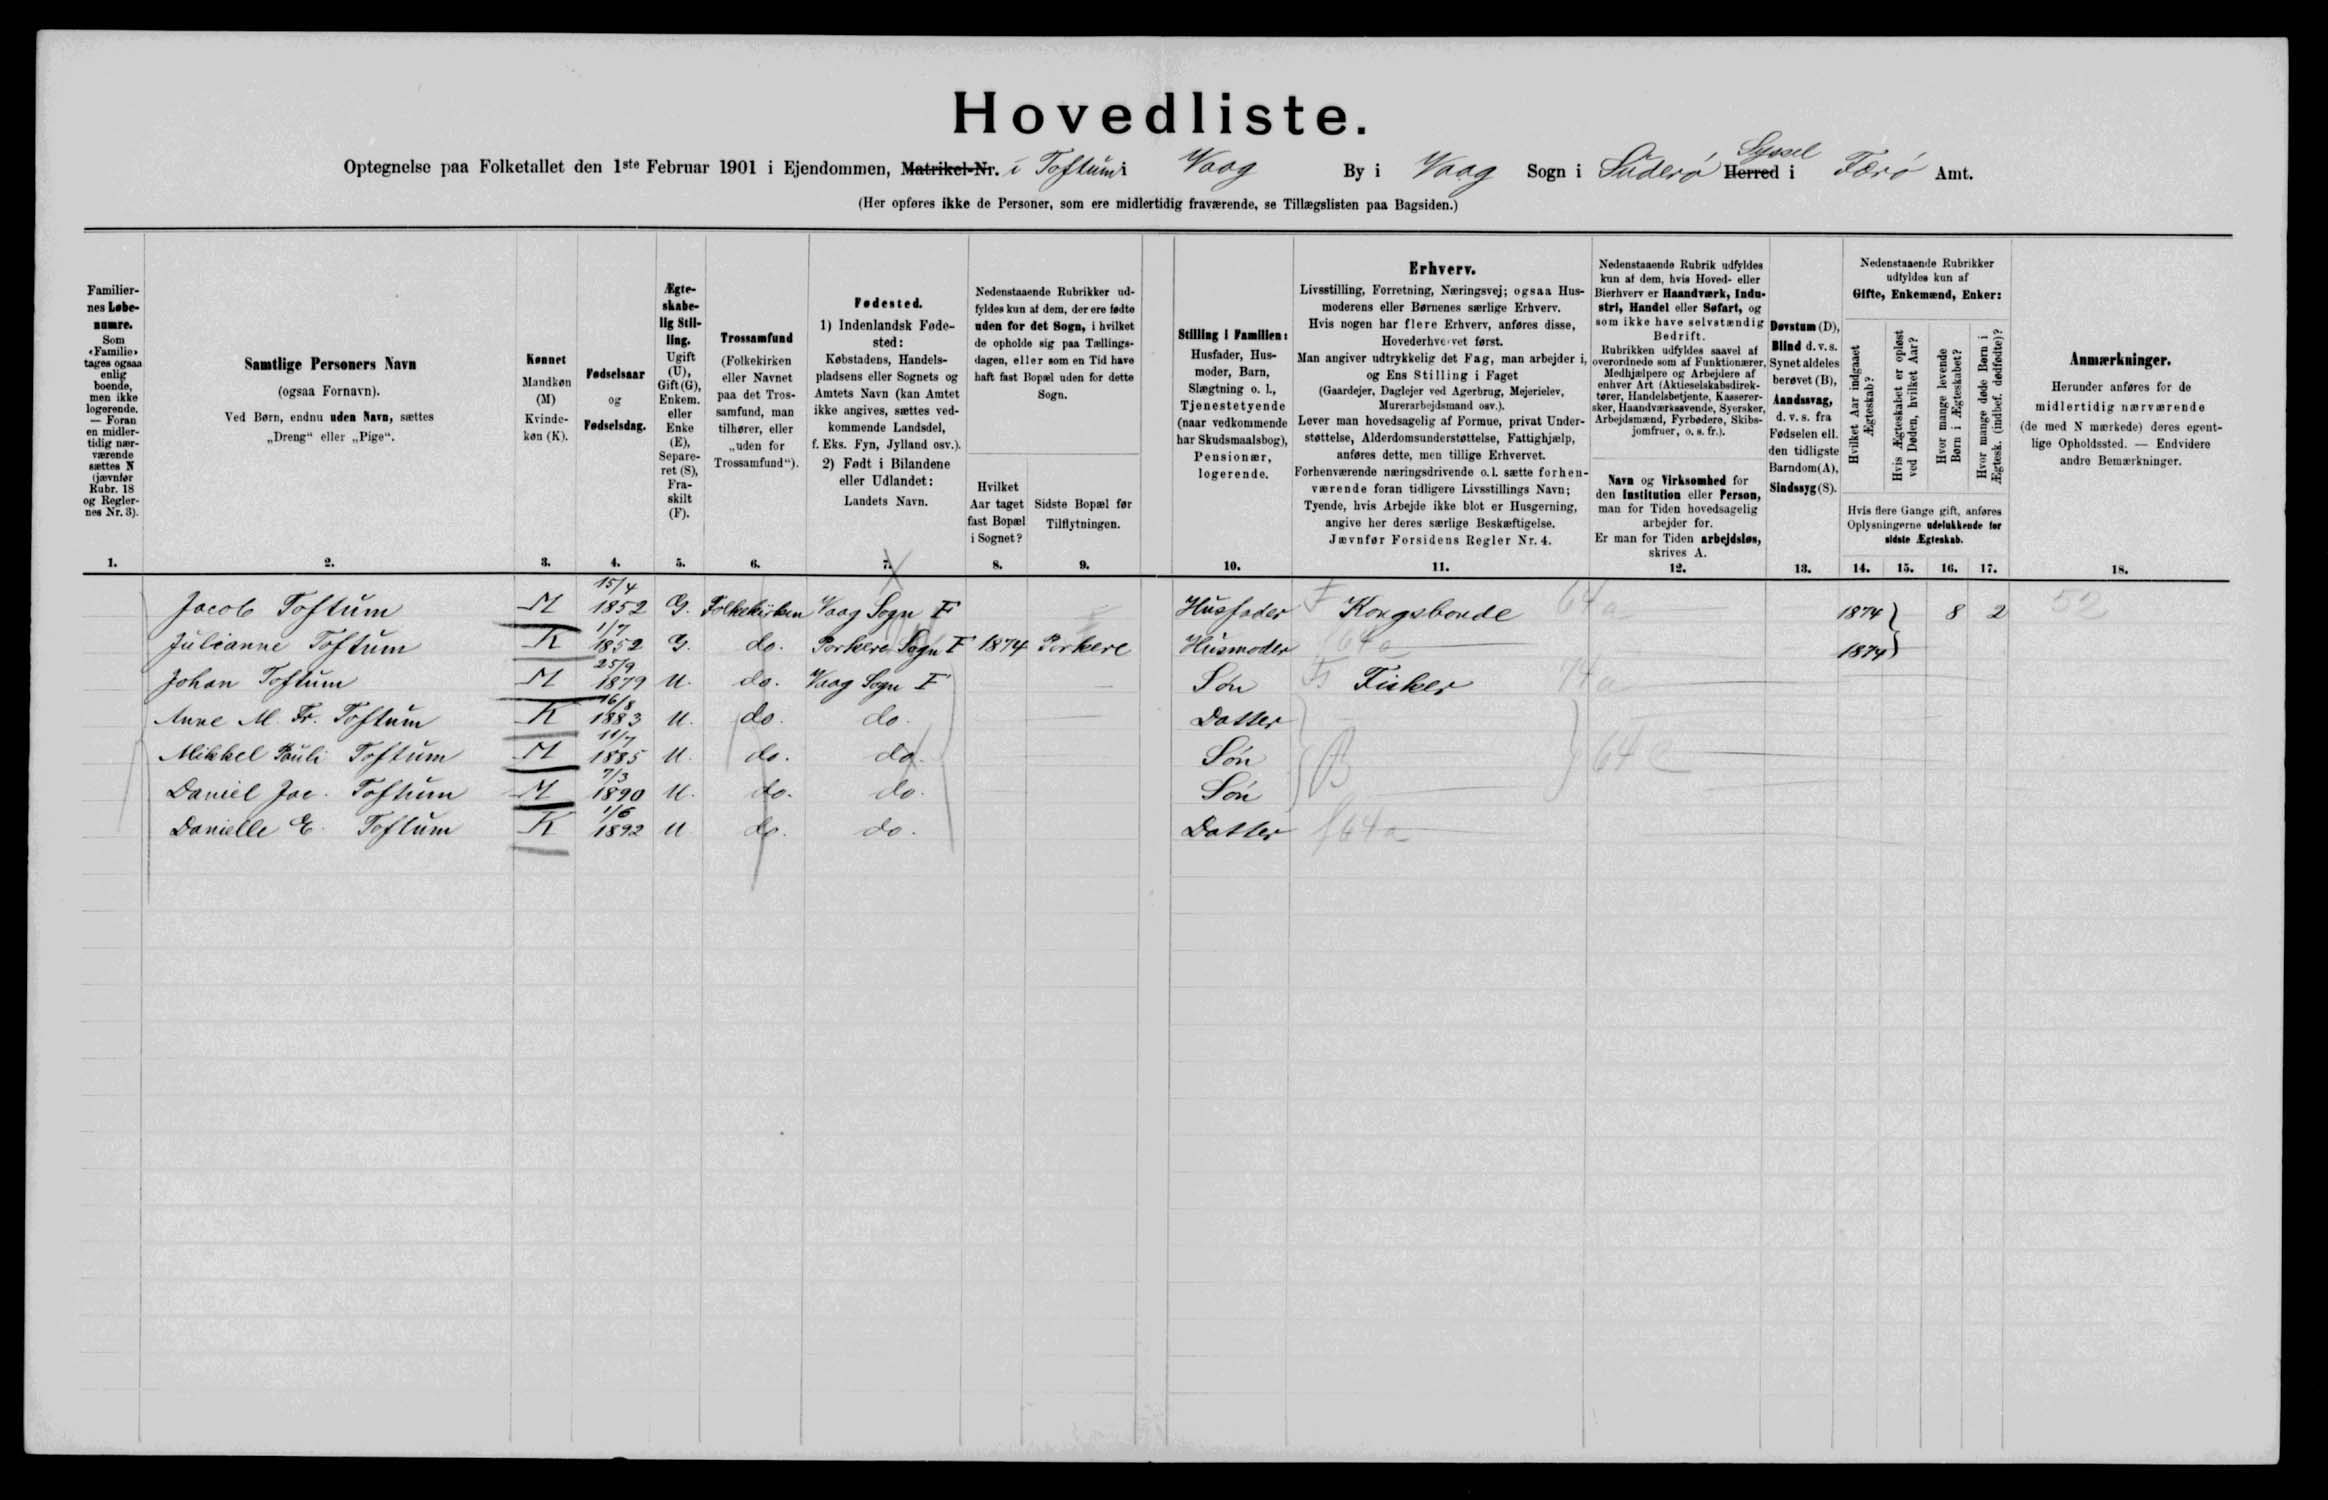 Hovedliste.
Optegnelse paa Folketallet den 1ste Februar 1901 i Ejendommen, Matrikel-Nr. i Toftum i Vaag By i Vaag Sogn i Suderø Herred Syssel i Færø Amt.
(Her opføres ikke de Personer, som ere midlertidig fraværende, se Tillægslisten paa Bagsiden.)
Familiernes Løbenumre.
Som «Familie» tages ogsaa enlig boende, men ikke logerende. — Foran en midlertidig nærværende sættes N (jævnfør Rubr. 18 og Reglernes Nr. 3).
Samtlige Personers Navn
(ogsaa Fornavn).
Ved Børn, endnu uden Navn, sættes
„Dreng“ eller „Pige“.
Kønnet
Mandkøn (M)
Kvindekøn (K).
Fødselsaar
og
Fødselsdag.
Ægteskabelig Stilling.
Ugift (U), Gift (G), Enkem. eller Enke (E), Separeret (S), Fraskilt (F).
Trossamfund
(Folkekirken eller Navnet paa det Trossamfund, man tilhører, eller „uden for Trossamfund“).
Fødested.
1) Indenlandsk Fødested:
Købstadens, Handelspladsens eller Sognets og Amtets Navn (kan Amtet ikke angives, sættes vedkommende Landsdel, f. Eks. Fyn, Jylland osv.).
2) Født i Bilandene eller Udlandet:
Landets Navn.
Nedenstaaende Rubrikker udfyldes kun af dem, der ere fødte uden for det Sogn, i hvilket de opholde sig paa Tællingsdagen, eller som en Tid have haft fast Bopæl uden for dette Sogn.
Hvilket Aar taget fast Bopæl i Sognet?
Sidste Bopæl før Tilflytningen.
Stilling i Familien:
Husfader, Husmoder, Barn, Slægtning o. l., Tjenestetyende (naar vedkommende har Skudsmaalsbog), Pensionær, logerende.
Erhverv.
Livsstilling, Forretning, Næringsvej; ogsaa Husmoderens eller Børnenes særlige Erhverv.
Hvis nogen har flere Erhverv, anføres disse, Hovederhvervet først.
Man angiver udtrykkelig det Fag, man arbejder i, og Ens Stilling i Faget
(Gaardejer, Daglejer ved Agerbrug, Mejerielev, Murerarbejdsmand osv.).
Lever man hovedsagelig af Formue, privat Understøttelse, Alderdomsunderstøttelse, Fattighjælp, anføres dette, men tillige Erhvervet.
Forhenværende næringsdrivende o. l. sætte forhenværende foran tidligere Livsstillings Navn;
Tyende, hvis Arbejde ikke blot er Husgerning, angive her deres særlige Beskæftigelse.
Jævnfør Forsidens Regler Nr. 4.
Nedenstaaende Rubrik udfyldes kun af dem, hvis Hoved- eller Bierhverv er Haandværk, Industri, Handel eller Søfart, og som ikke have selvstændig Bedrift.
Rubrikken udfyldes saavel af overordnede som af Funktionærer, Medhjælpere og Arbejdere af enhver Art (Aktieselskabsdirektører, Handelsbetjente, Kasserersker, Haandværkssvende, Syersker, Arbejdsmænd, Fyrbødere, Skibsjomfruer, o. s. fr.).
Navn og Virksomhed for den Institution eller Person, man for Tiden hovedsagelig arbejder for.
Er man for Tiden arbejdsløs, skrives A.
Døvstum (D), Blind d. v. s. Synet aldeles berøvet (B), Aandssvag, d. v. s. fra Fødselen ell. den tidligste Barndom (A), Sindssyg (S).
Nedenstaaende Rubrikker udfyldes kun af
Gifte, Enkemænd, Enker:
Hvilket Aar indgaaet Ægteskab?
Hvis Ægteskabet er opløst ved Døden, hvilket Aar?
Hvor mange levende Børn i Ægteskabet?
Hvor mange døde Børn i Ægtesk. (indbef. dødfødte)?
Hvis flere Gange gift, anføres Oplysningerne udelukkende for sidste Ægteskab.
Anmærkninger.
Herunder anføres for de midlertidig nærværende (de med N mærkede) deres egentlige Opholdssted. — Endvidere andre Bemærkninger.
1. 2. 3. 4. 5. 6. 7. 8. 9. 10. 11. 12. 13. 14. 15. 16. 17. 18.
Jacob Toftum M 15/4 1852 G. Folkekirken Vaag Sogn F Husfader F Kongsbonde 64 a 1874 8 2 52
Julianne Toftum K 1/7 1852 G. do. Porkere Sogn F 1874 Porkere Husmoder 64a 1874
Johan Toftum M 25/9 1879 U. do. Vaag Sogn F Søn Fisker 74 a
Anne M. Fr. Toftum K 16/8 1883 U. do. do. Datter
Mikkel Pauli Toftum M 11/7 1885 U. do. do. Søn B 64
Daniel Jac. Toftum M 7/3 1890 U. do. do. Søn
Danielle E. Toftum K 1/6 1892 U do. do. Datter f64a